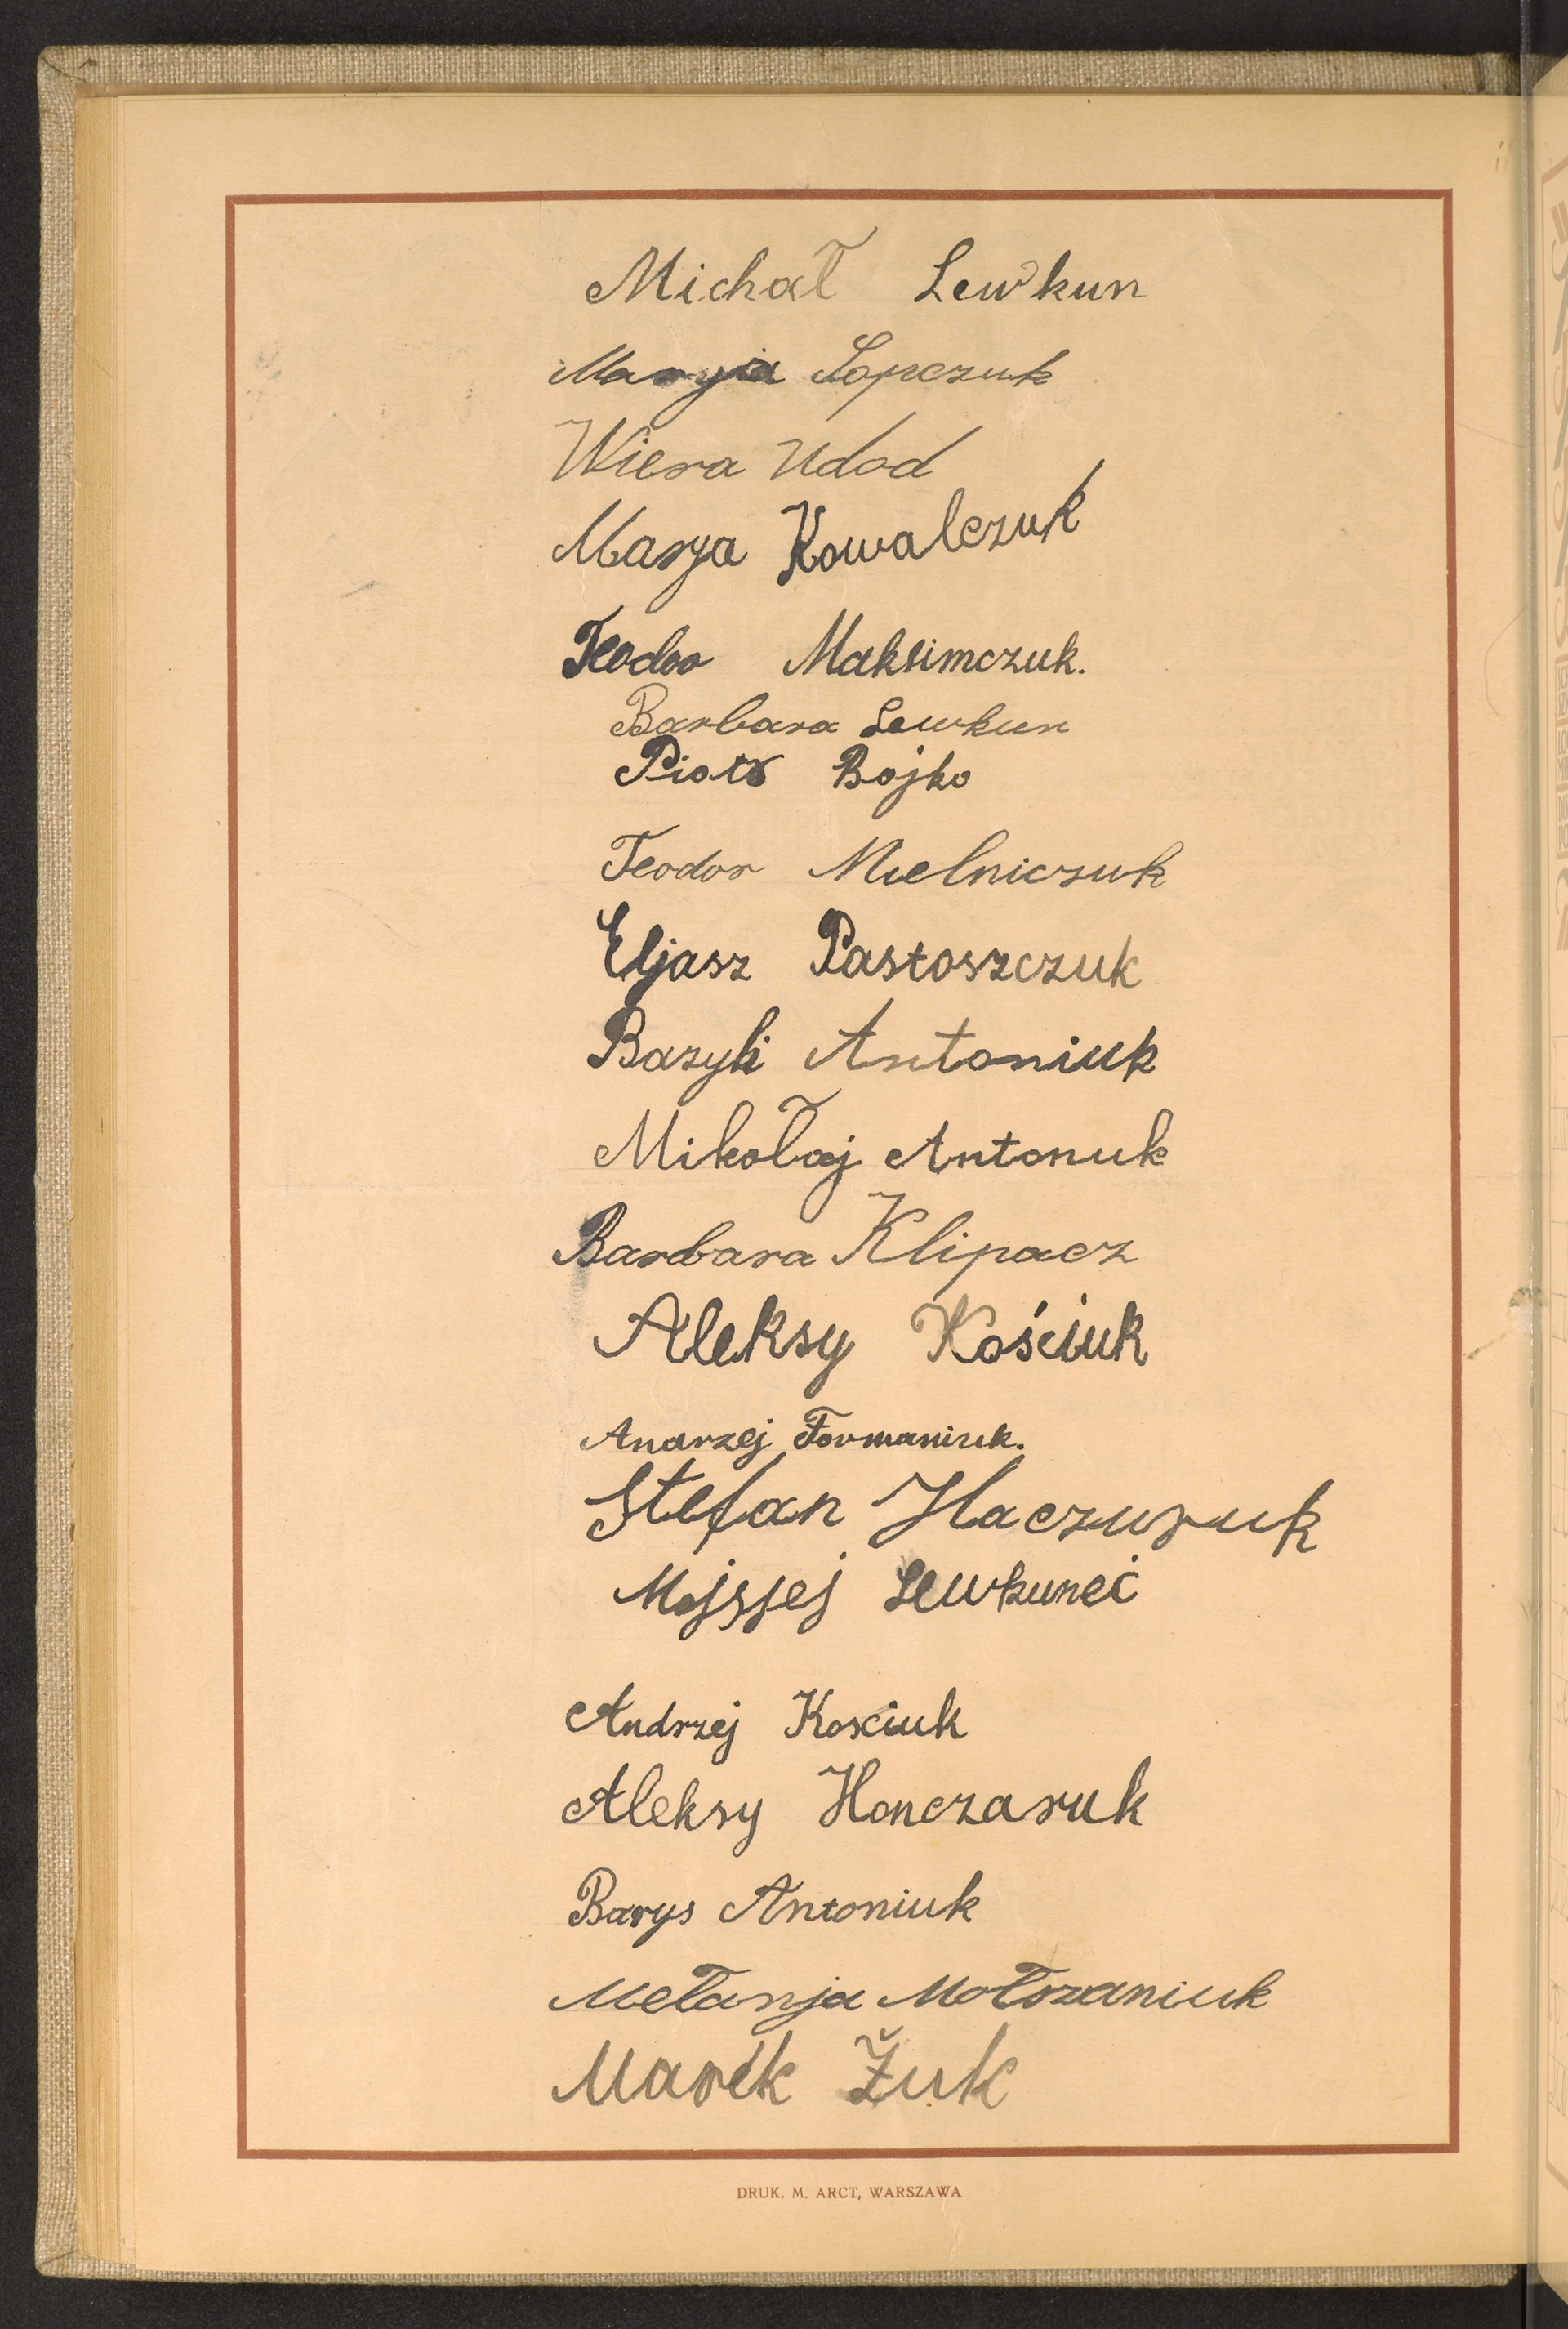 Michał Lewkun
Maryja Sopczuk
Wiera Udod
Marja Kowalczuk
Teodor Maksimczuk.
Barbara Lewkun
Piotr Bojko
Teodor Mielniczuk
Eljasz Pastoszczuk
Bazyli Antoniuk
Mikołaj Antonuk
Barbara Klipacz
Aleksy Kościuk
Andrzej Formaniuk.
Stefan Haczuruk
Mojsjej
Andrzej Kosciuk
Aleksy Honczaruk
Barys Antoniuk
Mełanja Mołozaniuk
Marek Żuk
DRUK. M. ARCT, WARSZAWA